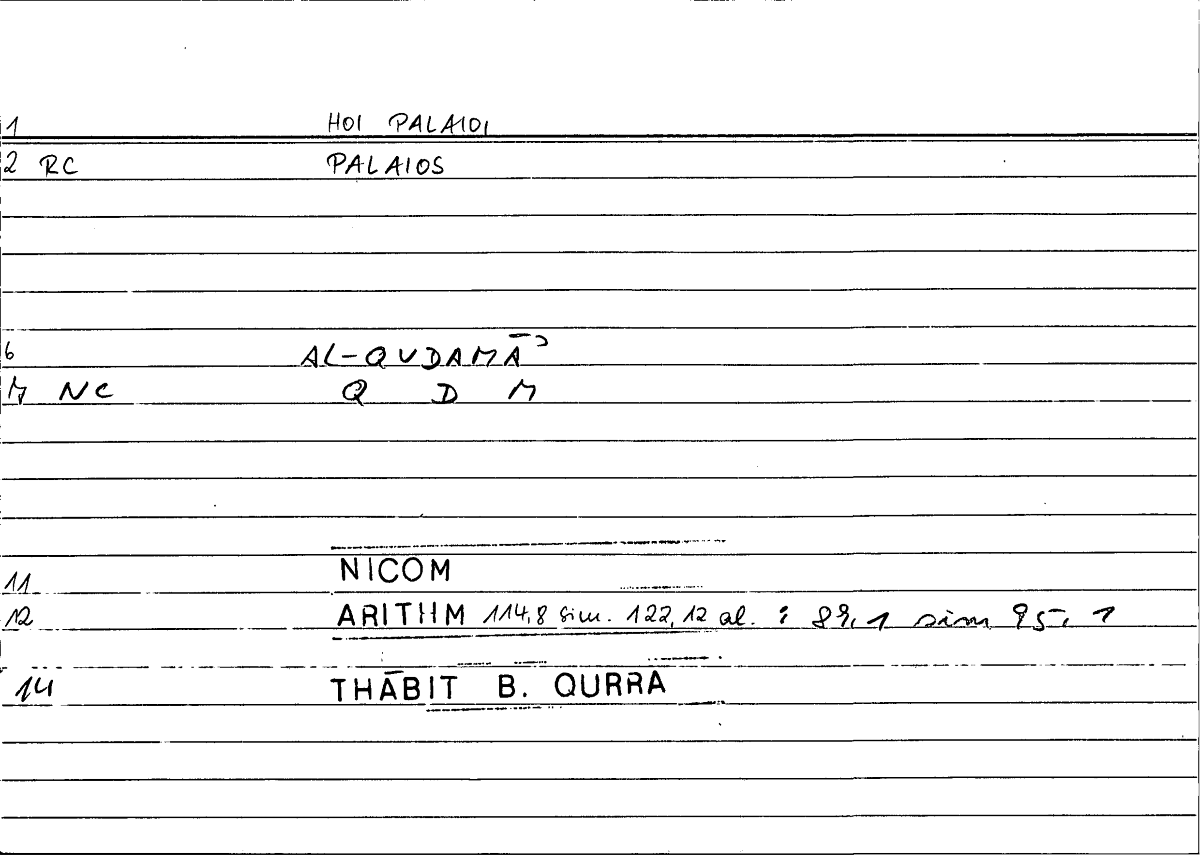 1 HOI PALAIOI
2 RC PALAIOS
6 AL-QUDAMĀʾ
7 NC Q D M
11 NICOM
12 ARITHM 114,8 sim. 122,12 al. : 89,1 sim 95,1
14 THĀBIT B. QURRA